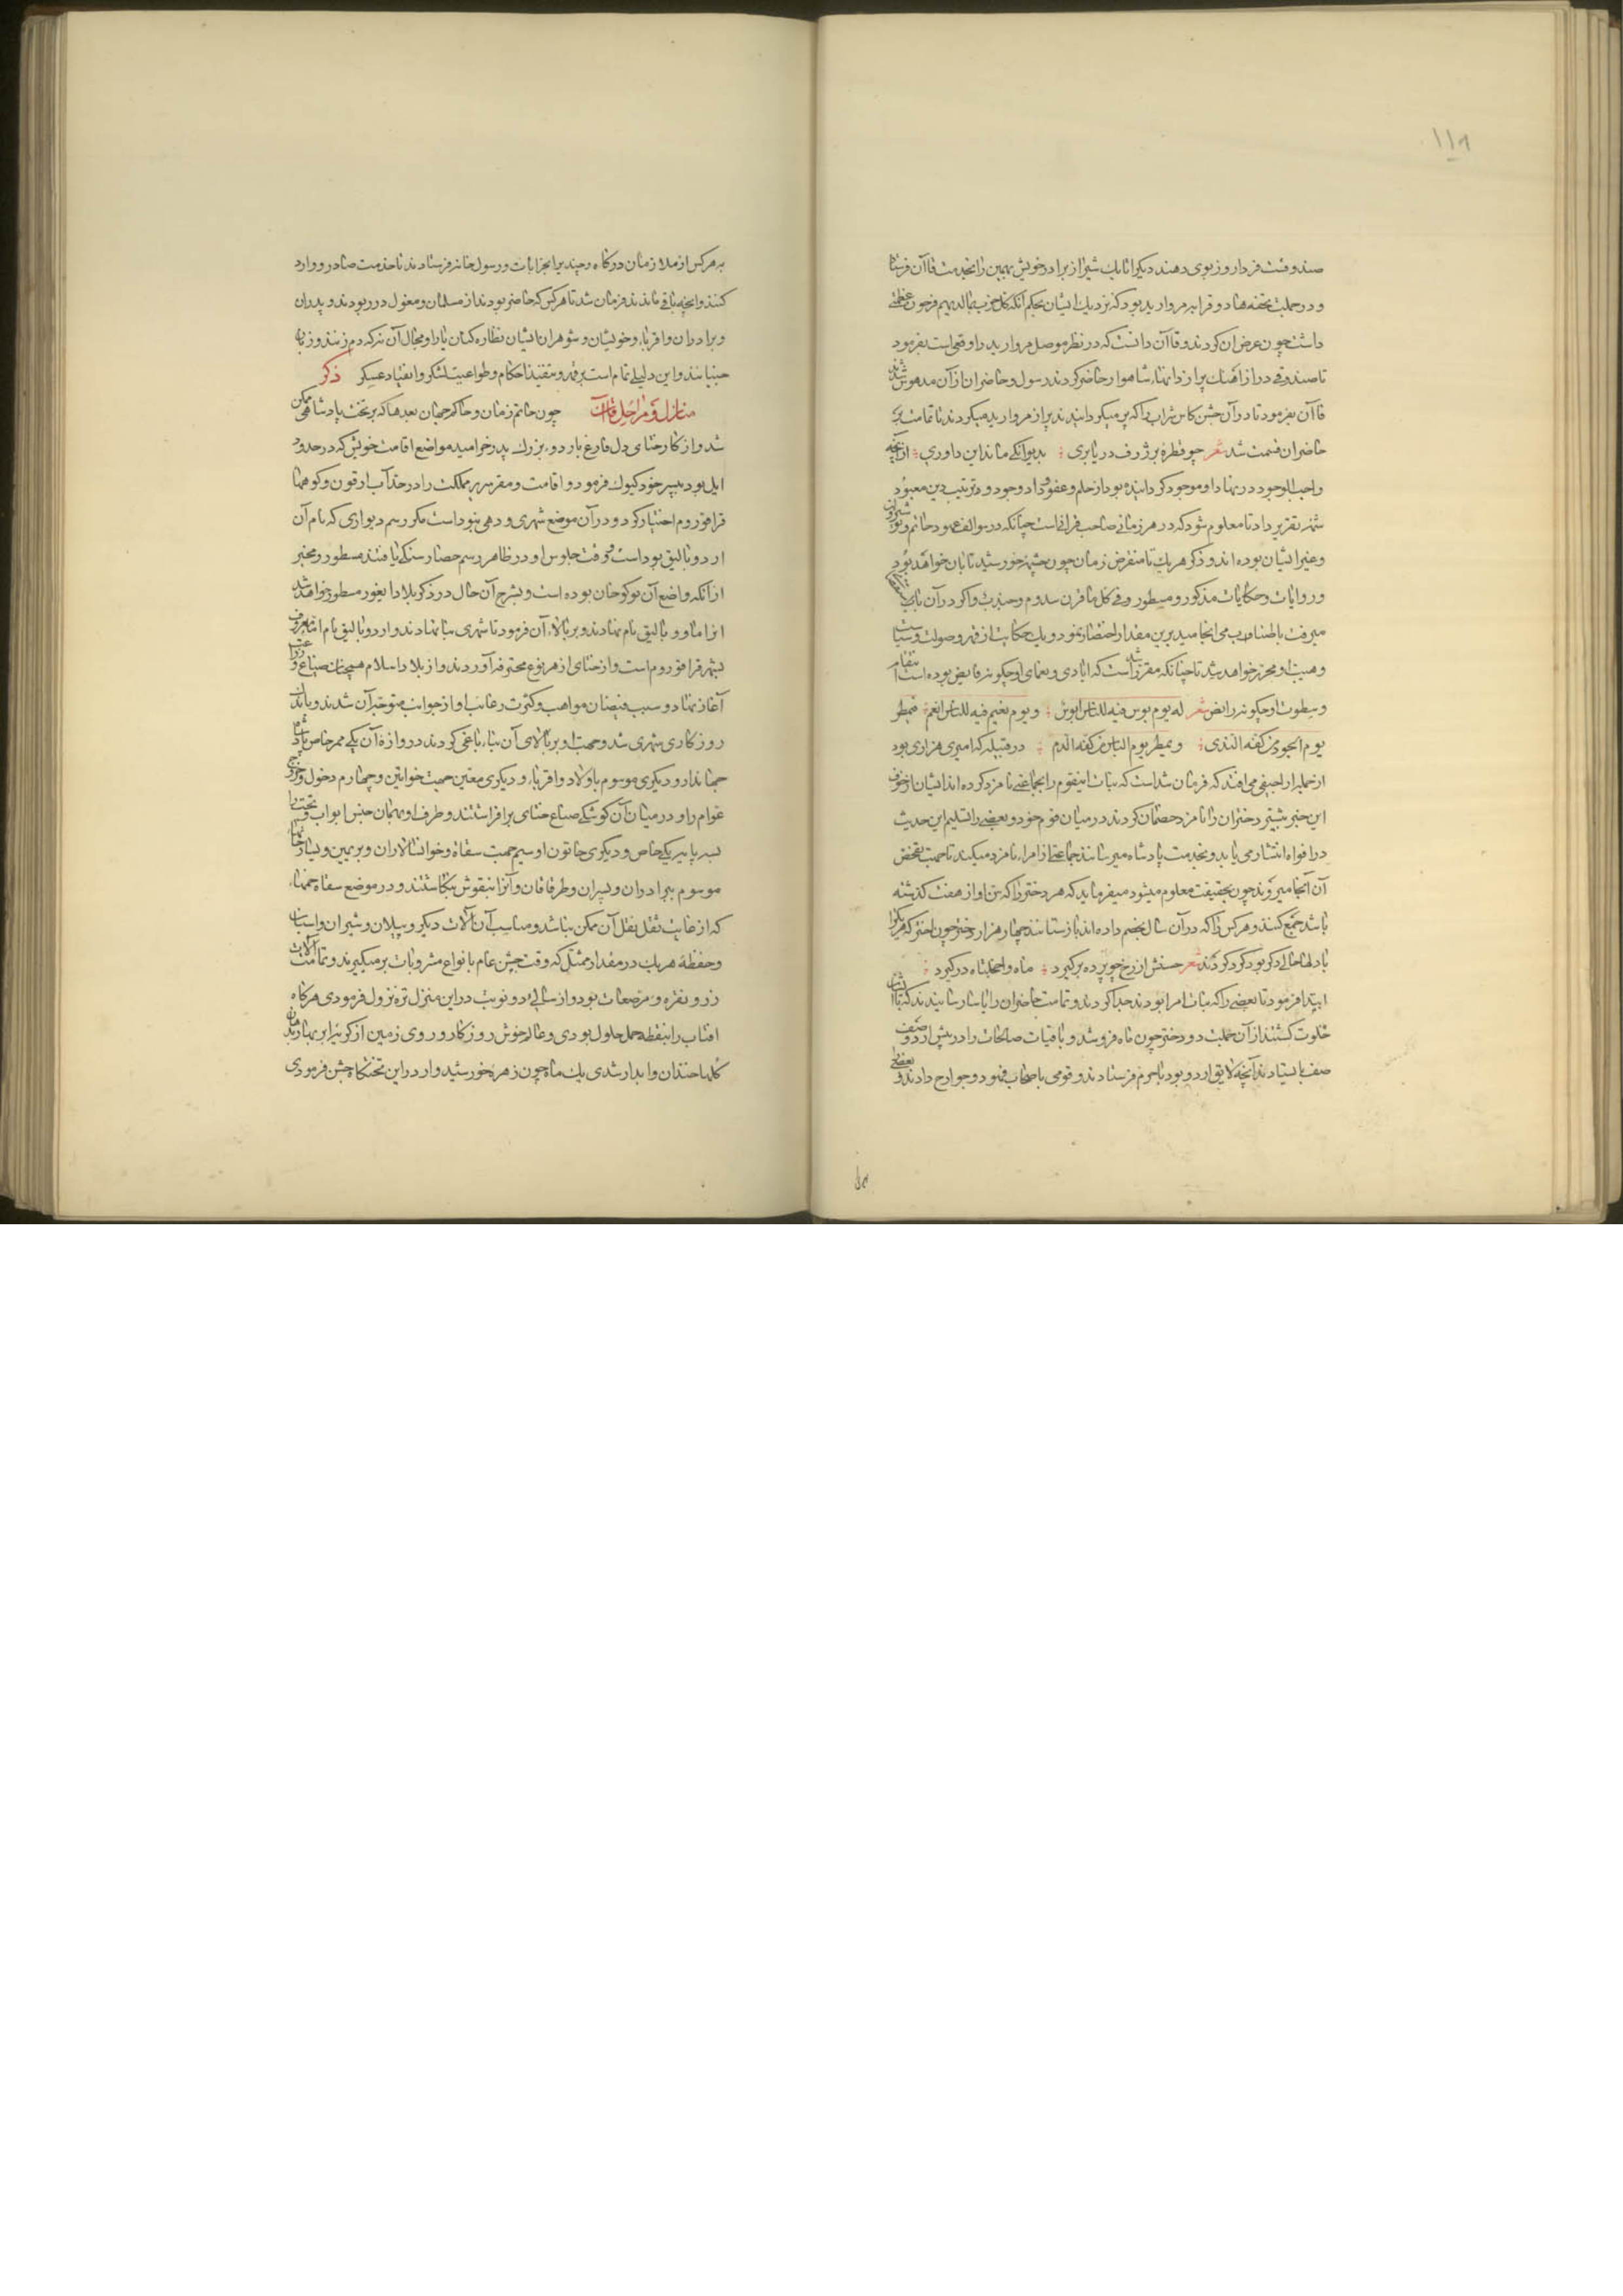 ۱۱۸
صندوقت فردا روز بوی دهند دیگر اتابک شیراز برادر خویش تهمتن را بخدمت قاآن فرستاد
و در جملت تحفه‌ها دو قرابه مروارید بود که نزدیک ایشان بحکم آنکه کل حزب بما لدیهم فرحون عظمتی
داشت چون عرض آن کردند و قاآن دانست که در نظر موصل مروارید را وقعی است بفرمود
تا صندوقی دراز آهنک پر از دانهاء شاهوار حاضر کردند رسول و حاضران از آن مدهوش شدند
قاآن بفرمود تا در آن جشن کاس شراب را که پر میکردانیدند پر از مروارید میکردند تا تمامت بر
حاضران قسمت شد شعر چو قطره بر ژرف دریا بری بدیوانکی ماند این داوری از آنچه
واجب الوجود در نهاد او موجود کردانیده بود از حلم و عفو و داد و جود و ترتیب دین معبود
شمه تقریر داد تا معلوم شود که در هر زمانی صاحب قرانی است چنانکه در سوالف عهود حاتم و نوشیروان
و غیر ایشان بوده‌اند و ذکر هر یک تا منقرض زمان چون چشمه خورشید تابان خواهد بود
و روایات و حکایات مذکور و مسطور وفی کل ما قرن سدوم و جندب و اکر در آن باب
میرفت باطناب می‌انجامید برین مقدار اختصار نمود و یک حکایت از قهر و صولت و سیاست
و هیبت او محرر خواهد شد تا چنانکه مقرر شد است که ایادی و نعمای او چکونه فایض بوده است انتقام
و سطوت او چکونه رابض شعر له یوم بوس فیه للناس ابوش و یوم نعیم فیه للناس انعم فیمطر
یوم الجود من کفه الندی و یمطر یوم الباس من کفه الدم در قبیله که امیری هزاری بود
اراجیفی می‌افتد که فرمان شداست که بنات اینقوم را بجماعتی نامزد کرده‌اند ایشان از خوف
این خبر بیشتر دختران را نامزد خصمان کردند در میان قوم خود و بعضی را تسلیم این حدیث
در افواه انتشار می‌یابد و بخدمت پادشاه میرسانند جماعتی از امراء نامزد میکند تا جهت تفحص
آن آنجا میروند چون بحقیقت معلوم میشود میفرماید که هر دختر را که سن او از هفت کذشته
باشد جمع کنند و هر کس را که در آن سال بخصم داده‌اند باز ستانند چهار هزار دختر چون اختر که هر یکرا
با دلها حالی دکر بود کرد کردند شعر حسنش از رخ چو پرده برکیرد ماه واخجلتاه درکیرد
ابتدا فرمود تا بعضی را که بنات امرا بودند جدا کردند و تمامت حاضران را یاسا رسانیدند که با ایشان
خلوت کنند از آن جملت دو دختر چون ماه فرو شد و باقیات صالحات را در پیش اردو صف
صف بایستادند آنچه لایق اردو بود با حرم فرستادند و قومی باصحاب فهود و جوارح دادند و بعضی
بهر کس از ملازمان درکاه و چند بر ابخرابات و رسول خانه فرستادند تا خدمت صادر و وارد
کنند و آنچه باقی ماندند فرمان شد تا هر کس که حاضر بودند از مسلمان و مغول در ربودند و پدران
و برادران و اقرباء و خویشان و شوهران ایشان نظاره کنان یارا و مجال آن نه که دم زنند و زبان
جنبانند و این دلیلی تمام است بر قهر و تنفیذ احکام و طواعیت لشکر و انقیاد عسکر ذکر
منازل و مراحل قاآن چون حاتم زمان و حاکم جهان بعدها که بر تخت پادشاهی ممکن
شد و از کار ختای دل فارغ باردوء بزرک پدر خرامید مواضع اقامت خویش که در حدود
ایل بود بپسر خود کیوک فرمود و اقامت و مقر سریر مملکت را در حد آب ارقون و کوهها
قراقوروم اختیار کرد و در آن موضع شهری و دهی نبوداست مکر رسم دیواری که نام آن
اردو بالیق بوداست و وقت جلوس او در ظاهر رسم حصار سنکی یافتند مسطور و مخبر
از آنکه واضع آن بوکو خان بوده است و بشرح آن حال در ذکر بلاد ایغور مسطور خواهد شد
انرا ماوو بالیق نام نهادند و بر بالاء آن فرمود تا شهری بنا نهادند و اردو بالیق نام اما معروف
بشهر قراقوروم است و از ختای از هر نوع محترفه آوردند و از بلاد اسلام همچنان صناع و
آغاز نهاد و سبب فیضان مواهب و کثرت رغایب او از جوانب متوجه آن شدند و باندک
روزکاری شهری شد و جهت او بر بالای آن بناء باغی کردند دروازه آن یکی ممر خاص پادشاه
جهاندار و دیکری موسوم باولاد و اقرباء و دیکری معین جهت خواتین و چهارم دخول و خروج
عوام را و در میان آن کوشکی صناع ختای برافراشتند و طرف او بهمان جنس ابواب و تخت را
بسه پایه یکی خاص و دیکری خاتون او سیم جهت سقاة و خوانسالاران و بر یمین و یسار خانها
موسوم ببرادران و پسران و طرقاقان و آنرا بنقوش بنکاشتند و در موضع سقاة خمهاء
که از غایت ثقل نقل آن ممکن نباشد و مناسب آن آلات دیکر و پیلان و شیران و اسبان
و حفظه هر یک در مقدار ممثل که وقت جشن عام بانواع مشروبات بر میکیرند و تمامت آلات
زر و نقره و مرصعات بود و از سالی دو نوبت در این منزل تره نزول فرمودی هرکاه
افتاب را بنقطه حمل حلول بودی و عالم خوش روزکار و روی زمین از کریه ابر بهار بدهان
کلها خندان و ابدار شدی یک ماه چون زهره خورشید وار در این تختکاه جشن فرمودی